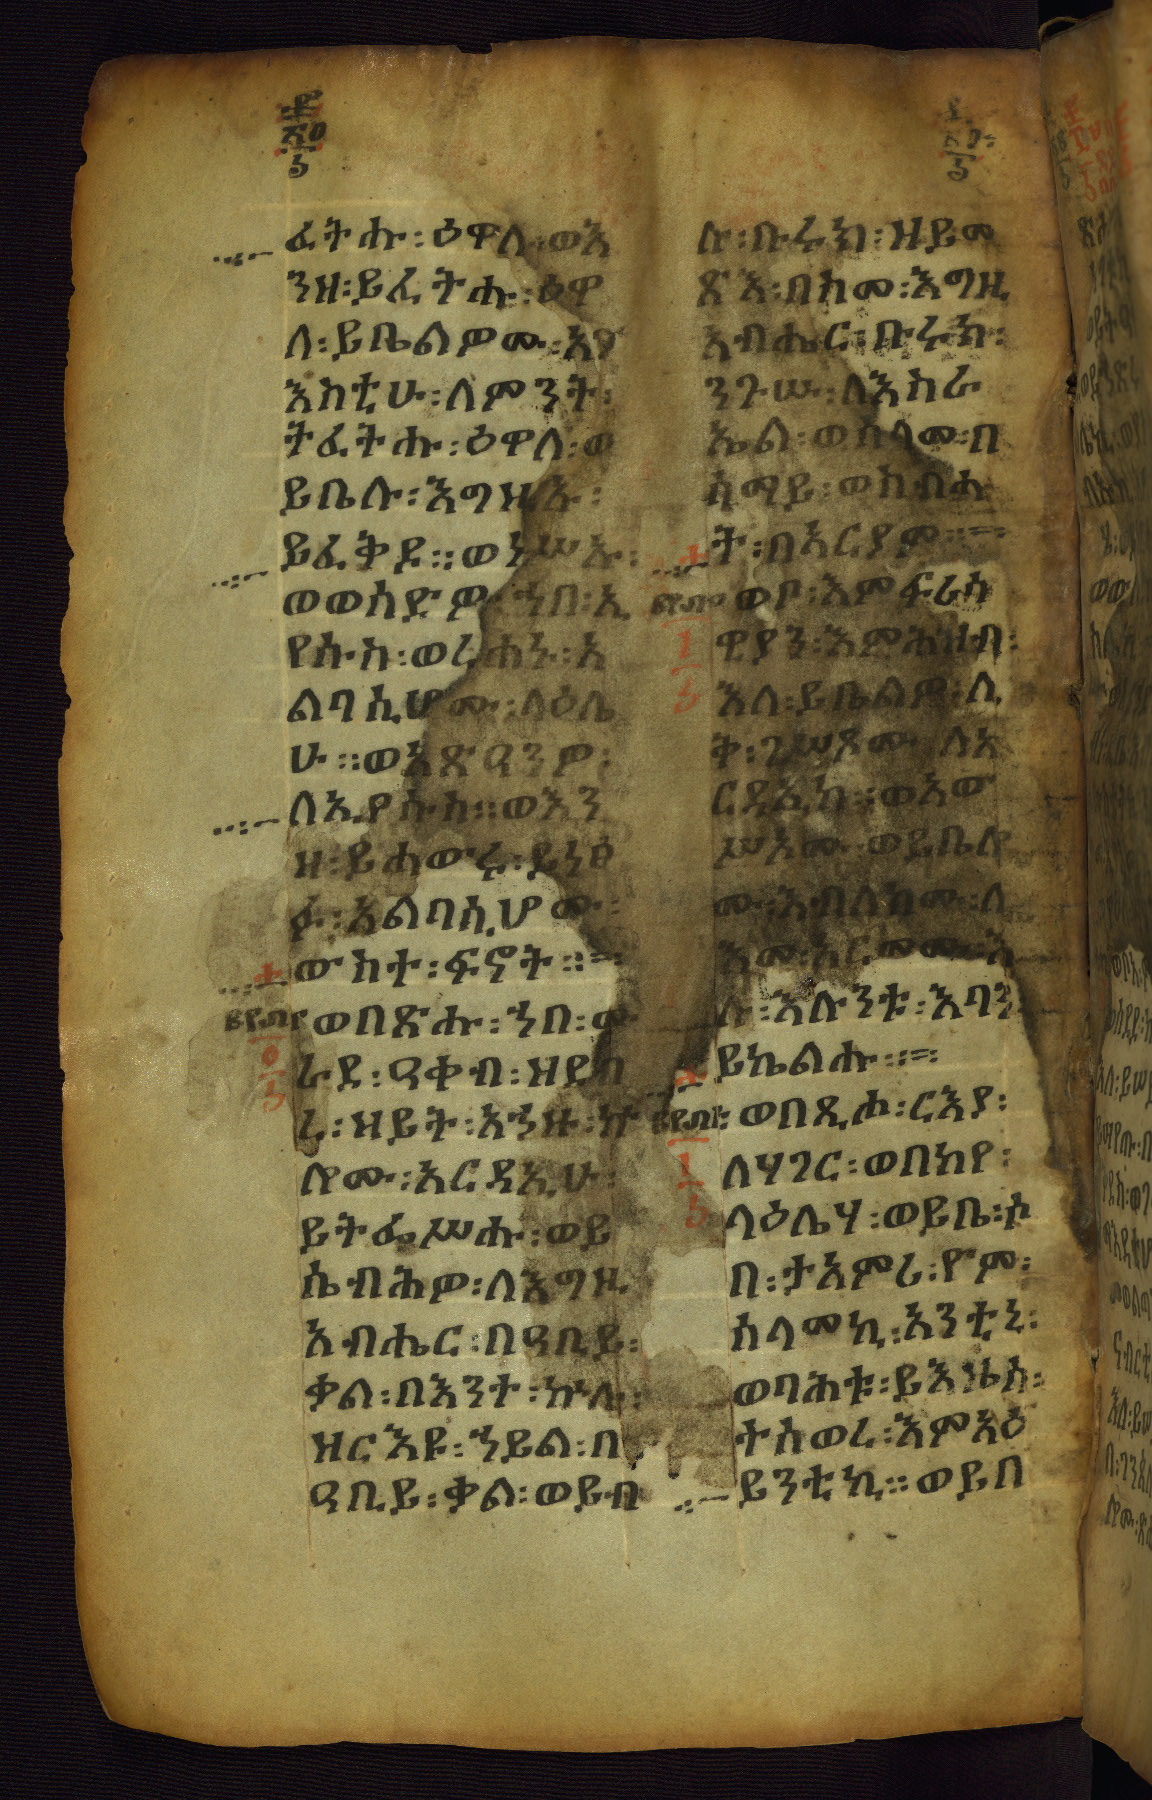 ፈትሑ፡ዕዋለ፡ወእ
ንዘ፡ይፈትሑ፡ዕዋ
ለ፡ይቤልዎሙ፡አጋ
እስቲሁ፡ለምንት፡
ትፈትሑ፡ዕዋለ፡ወ
ይቤሉ፡እግዚኡ፡
ይፈቅዶ፡፡ወነሥኡ፡
ወወሰድዎ፡ኀበ፡ኢ
የሱስ፡ወረሐኑ፡አ
ልባሲሆሙ፡ላዕሌ
ሁ፡፡ወአጽዓንዎ፡
ለኢየሱስ፡፡ወእን
ዘ፡ይሐውሩ፡ይነፀ
ፉ፡አልባሲሆሙ፡
ውስተ፡ፍኖት፡፡
ወበጽሑ፡ኀበ፡ሙ
ራደ፡ዓቀብ፡ዘደብ
ረ፡ዘይት፡አኀዙ፡ኵ
ሎሙ፡አርዳኢሁ፡
ይትፌሥሑ፡ወይ
ሴብሕዎ፡ለእግዚ
አብሔር፡በዓቢይ፡
ቃል፡በእንተ፡ኵሉ፡
ዘርእዩ፡ኀይል፡በ
ዓቢይ፡ቃል፡ወይብ
ሉ፡ቡሩክ፡ዘይመ
ጽእ፡በስመ፡እግዚ
አብሔር፡ቡሩክ፡
ንጉሠ፡እስራ
ኤል፡ወሰላመ፡በ
ሰማይ፡ወስብሐ
ት፡በአርያም፡፡
ወቦ፡እምፍሪሳ
ዊያን፡እምሕዝብ፡
እለ፡ይቤልዎ፡ሊ
ቅ፡ገሥጾሙ፡ለአ
ርዳኢከ፡፡ወአው
ሥአሙ፡ወይቤሎ
ሙ፡እብለክሙ፡ለ
እመ፡አርመሙ፡እ
ሉ፡እሉንቱ፡እባን፡
ይኬልሑ፡፡
ወበጺሖ፡ርእያ፡
ለሃገር፡ወበከየ፡
ላዕሌሃ፡ወይቤ፡ሶ
በ፡ታአምሪ፡ዮም፡
ሰላመኪ፡አንቲኒ፡
ወባሕቱ፡ይእዜሰ፡
ተሰወረ፡እምአዕ
ይንቲኪ፡፡ወይበ